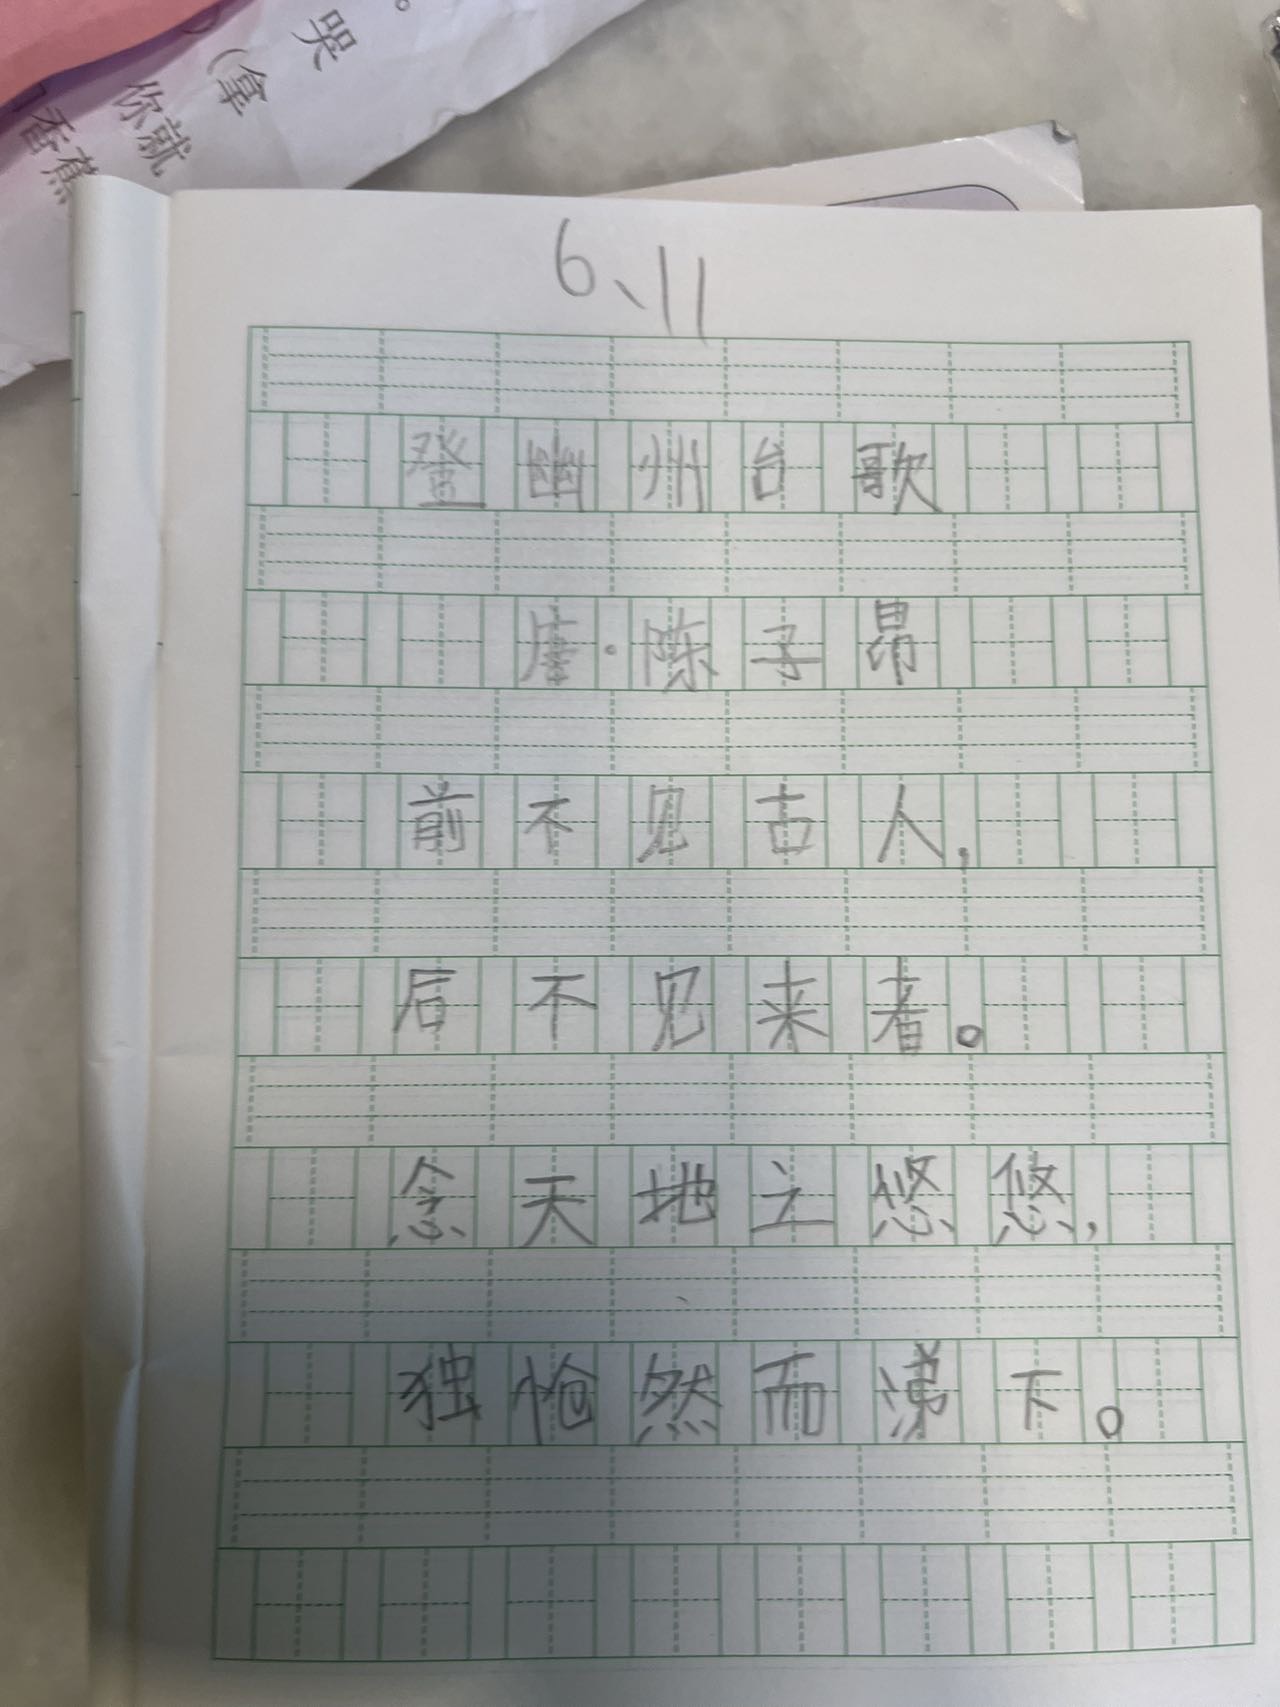 哭
（拿
你就
香蕉
6、11
登幽州台歌
唐·陈子昂
前不见古人，
后不见来者。
念天地之悠悠，
独怆然而涕下。